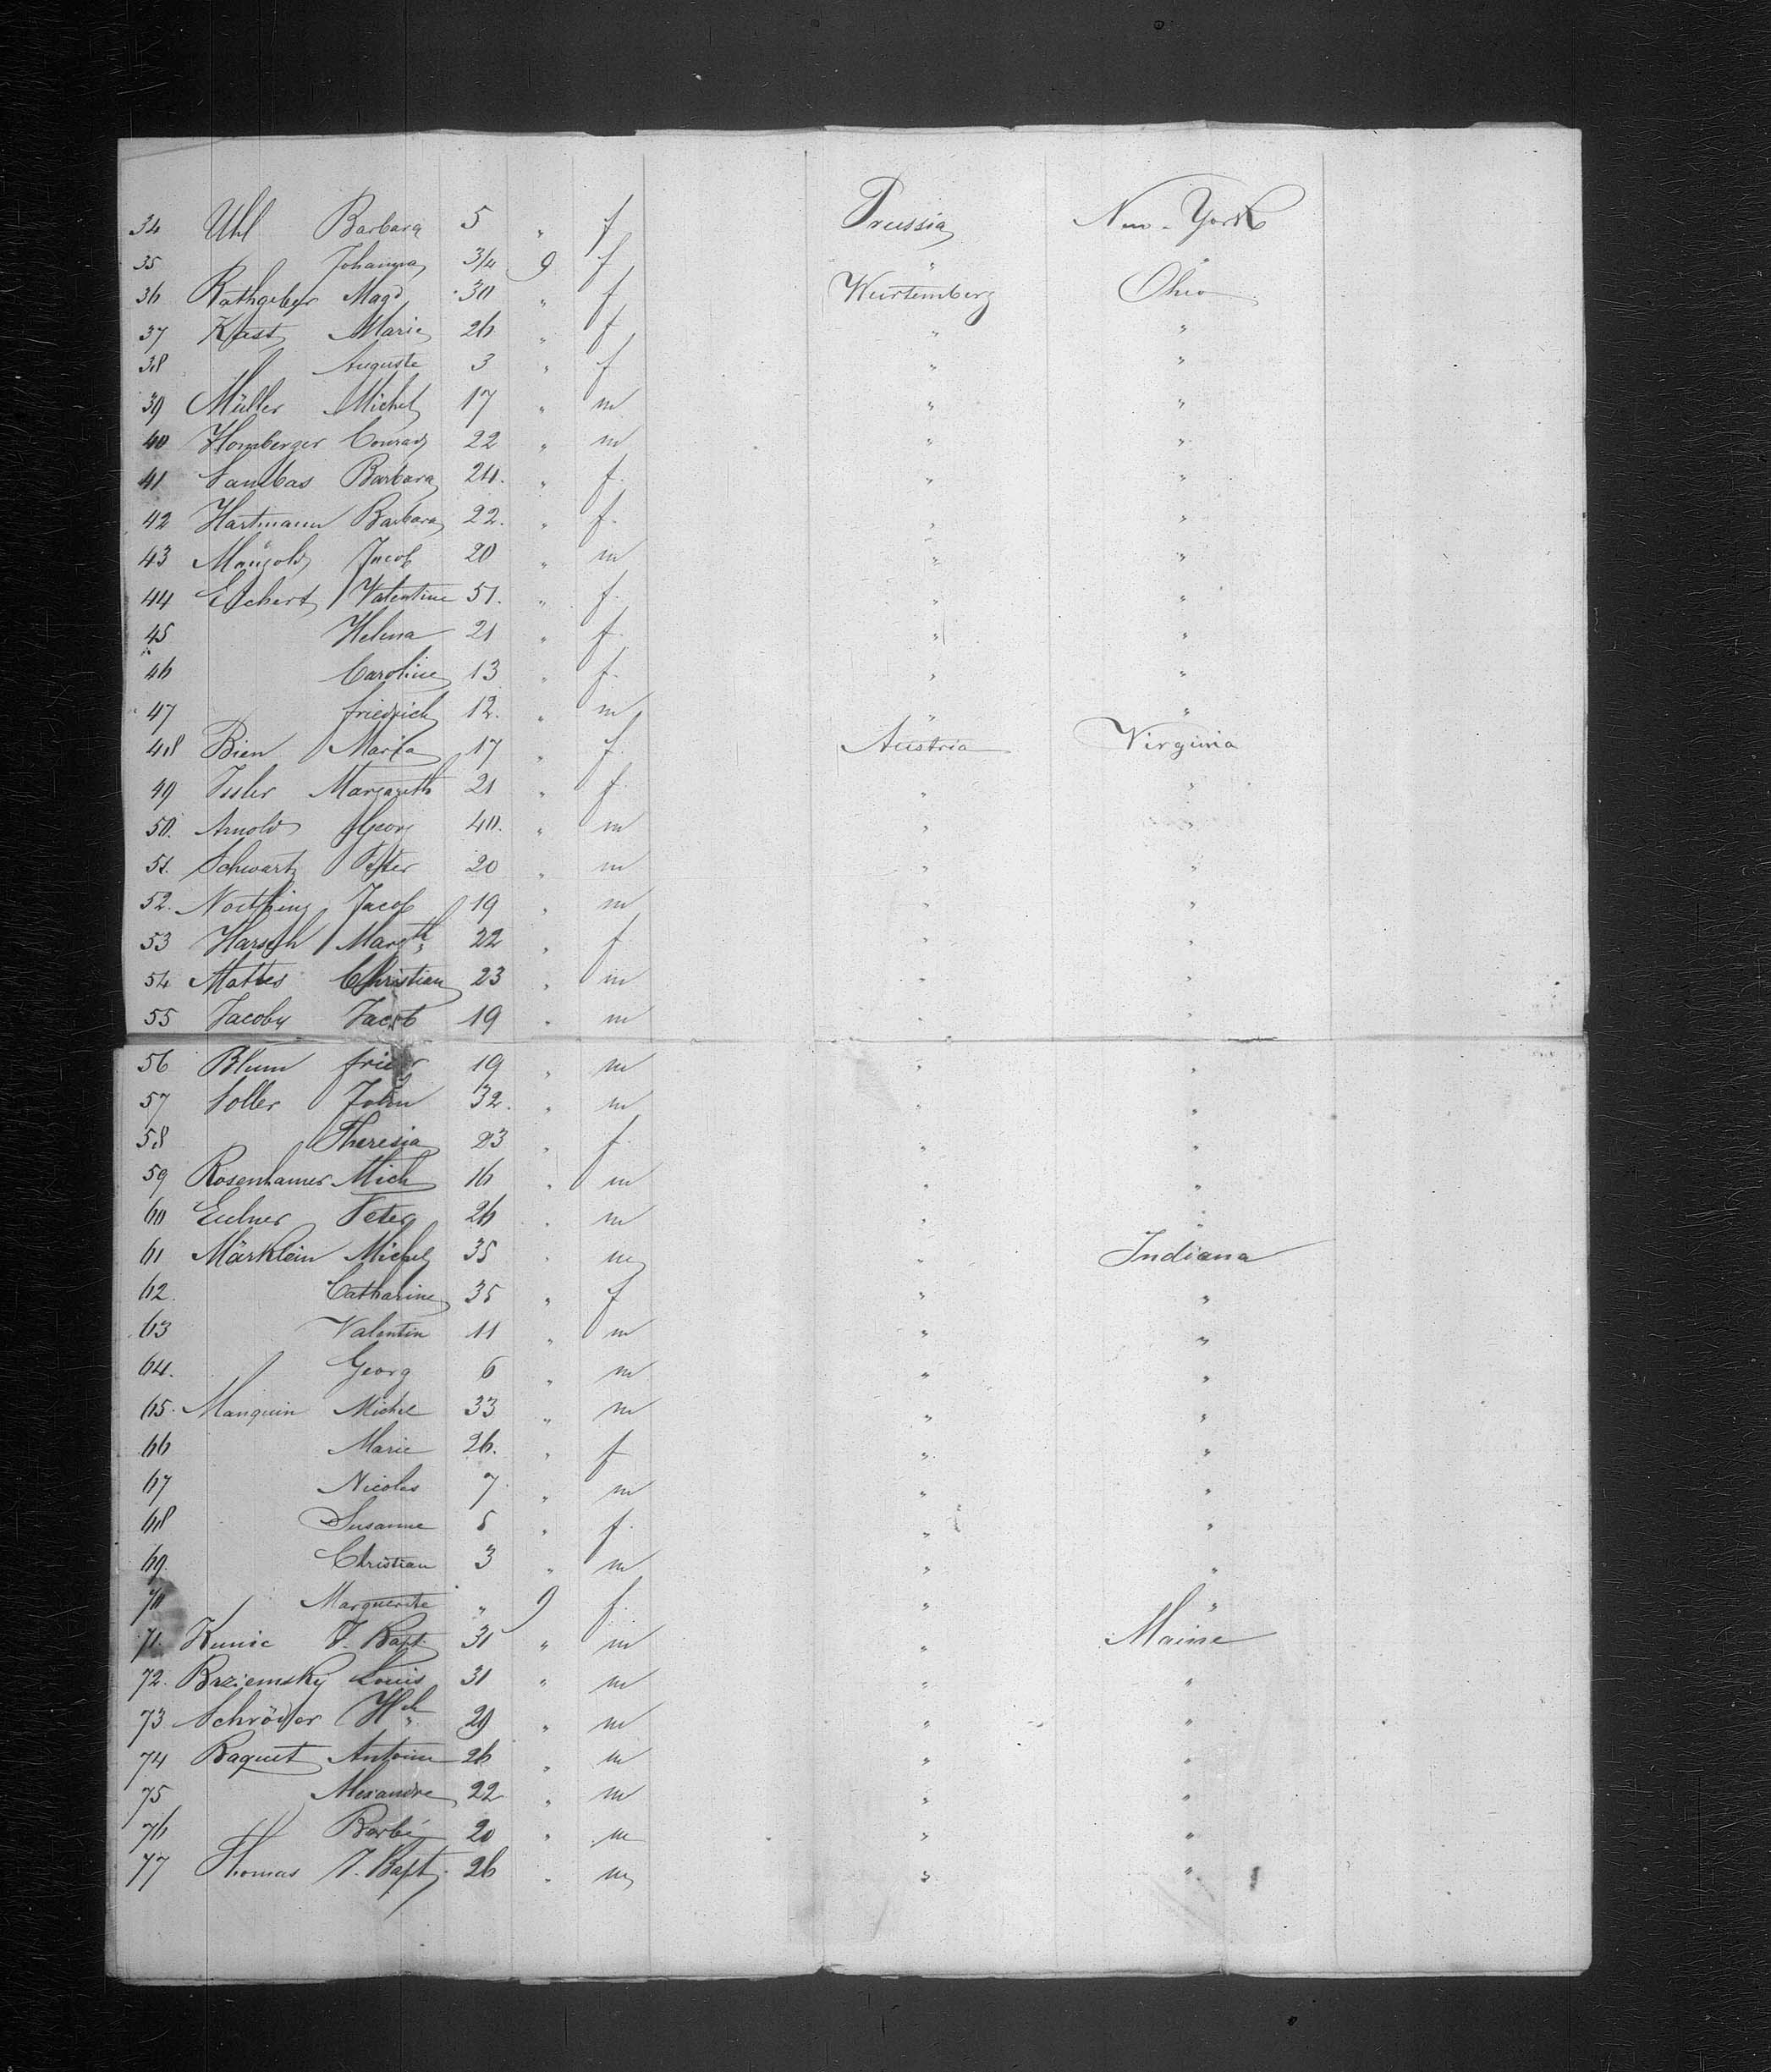 34 Uhl Barbara 5 " f Prussia New-York
35 Johanna 3/4 9 f " "
36 Rathgeber Magd 30 " f Wurtemberg Ohio
37 Kast Marie 26 " f " "
38 Auguste 3 " f " "
39 Müller Michel 17 " m " "
40 Homberger Conrad 22 " m " "
41 Barbara 20. " f " "
42 Hartmann Barbara 22. " f. " "
43 Mangold Jacob 20 " m " "
44 Eschert Valentine 51. " f. " "
45 Helena 21 " f " "
46 Caroline 13 " f. " "
47 friedrich 12. " m " "
48 Bien Maria 17 " f. Austria Virginia
49 Issler Margareth 21 " f " "
50. Arnold Georg 40. " m " "
51. Schwartz Peter 20 " m " "
52. Jacob 19 " m " "
53 Harsch Margth 22 " f " "
54 Mattes Christian 23 " m " "
55 Jacoby Jacob 19 " m " "
56 Blum friedr 19 " m " "
57 Soller John 32. " m " "
58 Theresia 23 " f " "
59 Rosenhamer Mich 16 " m " "
60 Eulner Peter 26 " m " "
61 Märklein Michel 35 " m " Indiana
62. Catharine 35 " f " "
63 Valentin 11 " m " "
64. Georg 6 " m " "
65. Manguin Michel 33 " m " "
66 Marie 26. " f " "
67 Nicolas 7 " m " "
68 Susanne 5 " f. " "
69. Christian 3 " m " "
70 Marguerite " 9 f. " "
71. Kunic J. Bapt. 31 " m " Maine
72. Brziemsky Louis 31 " m " "
73 Schröder Hch 29 " m " "
74 Baquet Antoine 26 " m " "
75 Alexandre 22 " m " "
76 Barbé 20 " m " "
77 Thomas J. Bapt. 26 " m " "